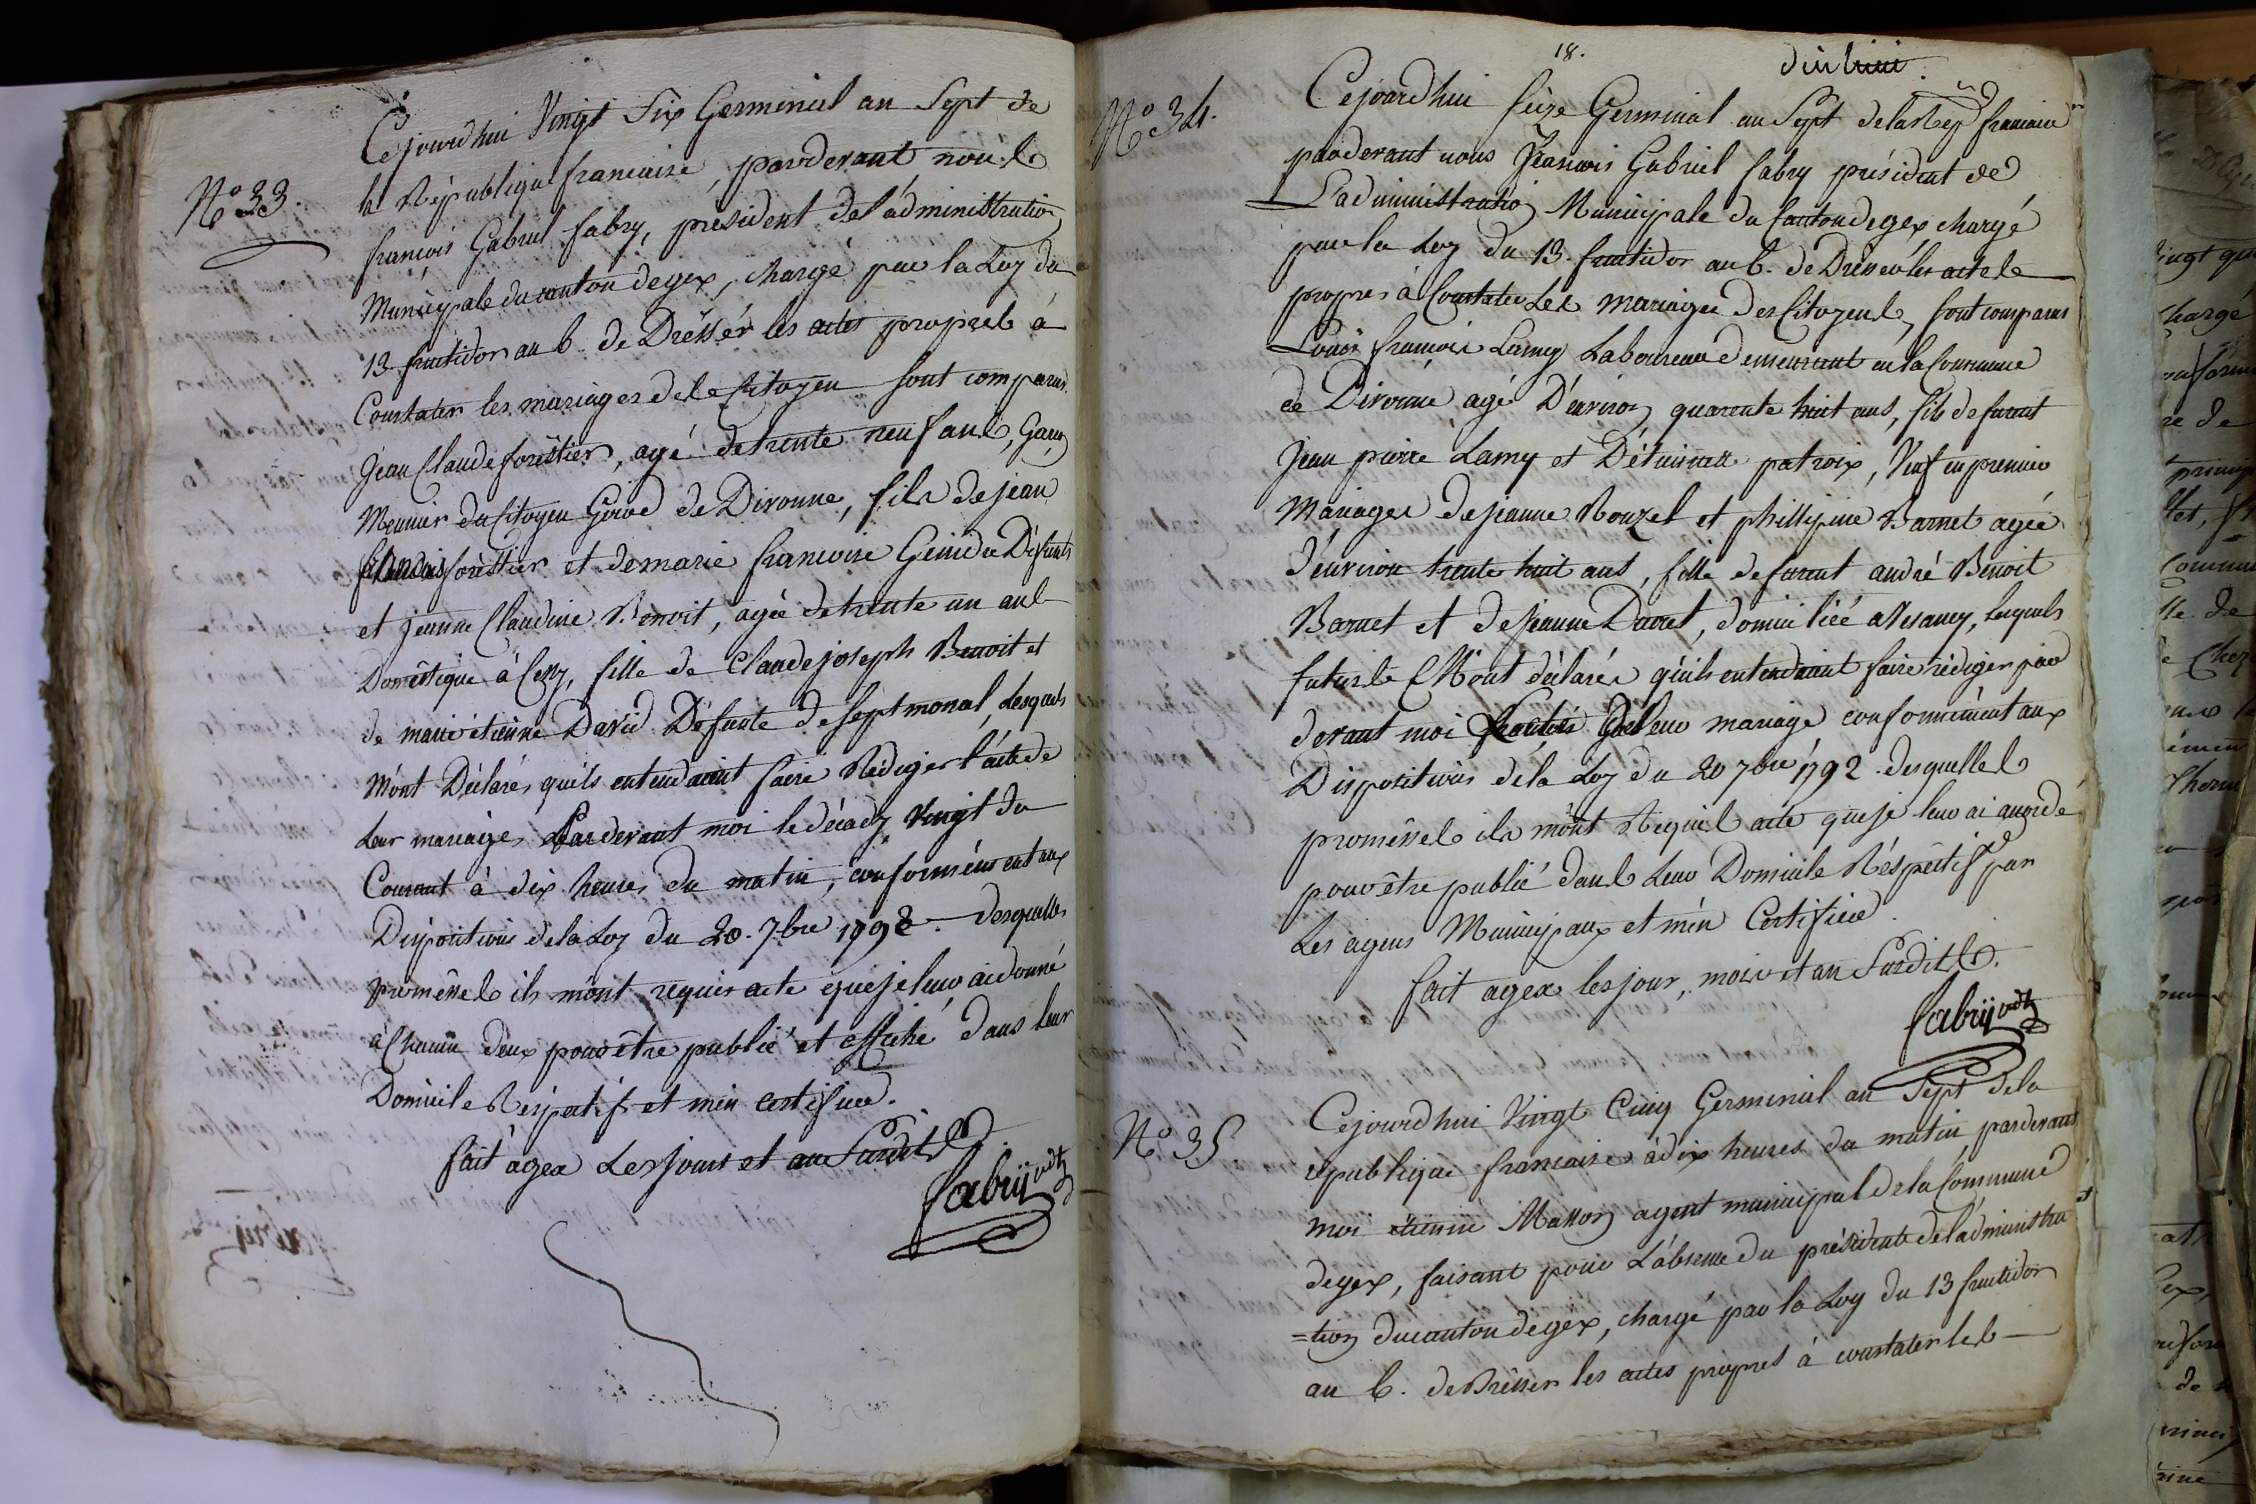 Cejourdhui Vingt Six Germinal an Sept de
la République francaise, pardevant nous
françois Gabriel fabry, président de l'administration
Municipale du canton degex, chargé par la Loy du
13 fructidor an 6. de Dresser les actes propres à
Constater les mariages des Citoyen sont comparus
N.º 33.
jean Claude forestier, agé de trente neuf ans, Garçon
Meunier du Citoyen Girod de Divonne, fils de jean
forestier et de marie francoise Défunts
et jeanne Claudine Benoit, agée de trente un ans
Domestique à Cessy, fille de Claude joseph Benoit et
de marie étienne David Défunte de Septmoncel, Lesquels
m'ont Déclarés quils entendoient faire Rédiger l'acte de
Leur mariage, Pardevant moi le décady Vingt du
Courant à dix heures du matin, conformément aux
Dispositions de la Loy du 20. 7.bre 1792. desquelles
promesses ils m'ont requis acte que je leur ai donné
à Chacun d'eux pour être publié et affiché dans leur
Domicile Réspectif et m'en certifier.
fait à gex Les jours et an Susdits
fabry
18.
N.º 34.
Cejourdhui seize Germinal an Sept de la Rep francaise
pardevant nous François Gabriel fabry président de
L'administration Municipale du Canton degex chargé
par la Loy du 13. fructidor an 6. de Dresser les actes
propres à Constater Les mariages des Citoyens, sont comparus
Louis françois Lamy Laboureur demeurant en la Commune
de Divonne agé D'environ quarente huit ans, fils de furent
jean pierre Lamy et D'étiennette patroix, Veuf en premier
Mariages de jeanne Rouzel et phillipine Barnet agée
d'environ trente huit ans, fille de furent andré Benoit
Barnet et de jeanne Davet, domiciliée a Vesancy, lesquels
futurs M'ont déclarés qu'ils entendoient faire rédiger par
devant moi leur mariage conformément aux
Dispositions de la Loy du 20 7bre 1792. desquelles
promesses ils m'ont Requis acte que je leur ai accordé
pour être publié dans Leur Domicile Réspectif par
Les agens Municipaux et m'en Certifier.
fait a gex les jour, mois et an Susdits.
fabry
N.º 35
Cejourdhui Vingt Cinq Germinal an Sept de la
république francaise à dix heures du matin pardevant
moi étienne Masson agent municipal de la Commune
degex, faisant pour L'absence du président de l'administra
=tion du canton degex, chargé par la Loy du 13 fructidor
an 6. de Dresser les actes propres à constater les